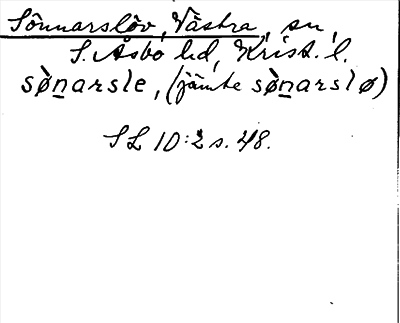 Sönnarslöv, Västra, sn,
S. Åsbo hd, Krist. l.
sø̀narsle, (jämte sø̀narslø)
SL 10:2 s. 48.